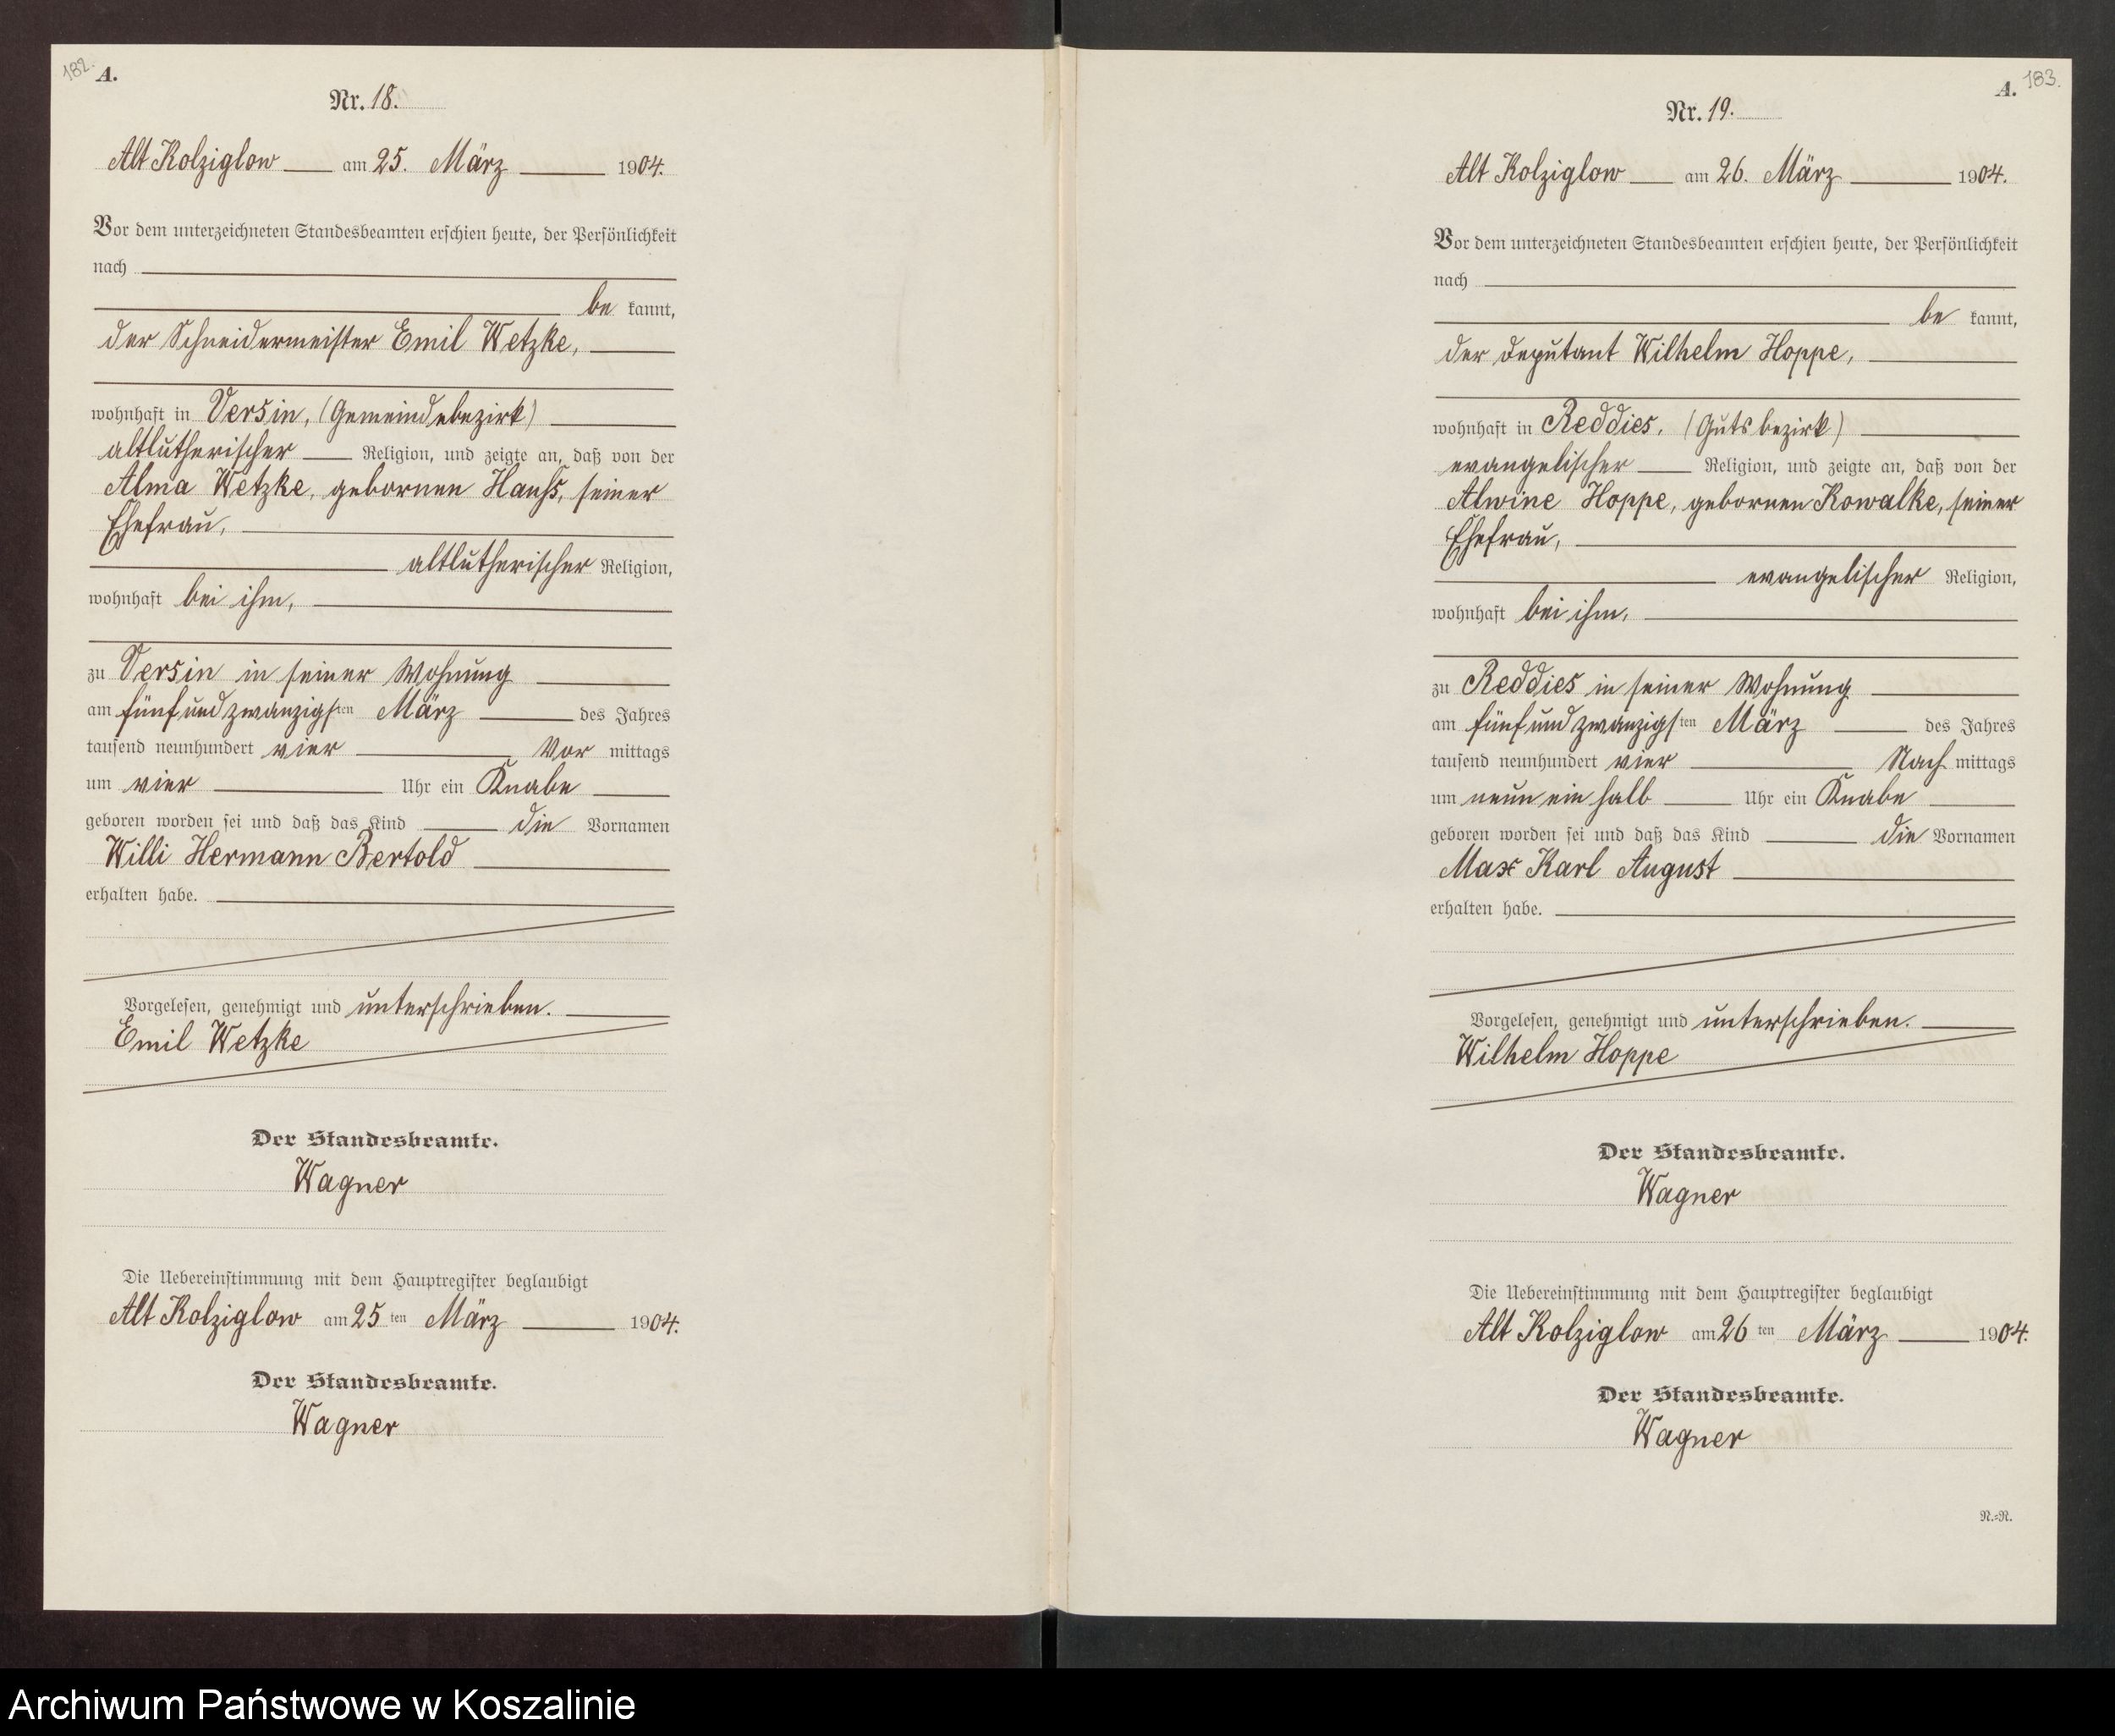 182.
A.
Nr. 18.
Alt Kolziglow am 25. März 1904.
Vor dem unterzeichneten Standesbeamten erschien heute, der Persönlichkeit
nach
be kannt,
der Schneidermeister Emil Wetzke,
wohnhaft in Versin, (Gemeindebezirk)
altlutherischer Religion, und zeigte an, daß von der
Alma Wetzke, gebornen Hauß, seiner
Ehefrau,
altlutherischer Religion,
wohnhaft bei ihm,
zu Versin in seiner Wohnung
am fünfundzwanzigsten März des Jahres
tausend neunhundert vier Vor mittags
um vier Uhr ein Knabe
geboren worden sei und daß das Kind die Vornamen
Willi Hermann Bertold
erhalten habe.
Vorgelesen, genehmigt und unterschrieben.
Emil Wetzke
Der Standesbeamte.
Wagner
Die Uebereinstimmung mit dem Hauptregister beglaubigt
Alt Kolziglow am 25 ten März 1904.
Der Standesbeamte.
Wagner
A.
183.
Nr. 19.
Alt Kolziglow am 26. März 1904.
Vor dem unterzeichneten Standesbeamten erschien heute, der Persönlichkeit
nach
be kannt,
der Deputant Wilhelm Hoppe,
wohnhaft in Reddies, (Gutsbezirk)
evangelischer Religion, und zeigte an, daß von der
Alwine Hoppe, gebornen Kowalke, seiner
Ehefrau,
evangelischer Religion,
wohnhaft bei ihm,
zu Reddies in seiner Wohnung
am fünfundzwanzigsten März des Jahres
tausend neunhundert vier Nach mittags
um neun ein halb Uhr ein Knabe
geboren worden sei und daß das Kind die Vornamen
Max Karl August
erhalten habe.
Vorgelesen, genehmigt und unterschrieben.
Wilhelm Hoppe
Der Standesbeamte.
Wagner
Die Uebereinstimmung mit dem Hauptregister beglaubigt
Alt Kolziglow am 26 ten März 1904.
Der Standesbeamte.
Wagner
R.=R.
Archiwum Państwowe w Koszalinie